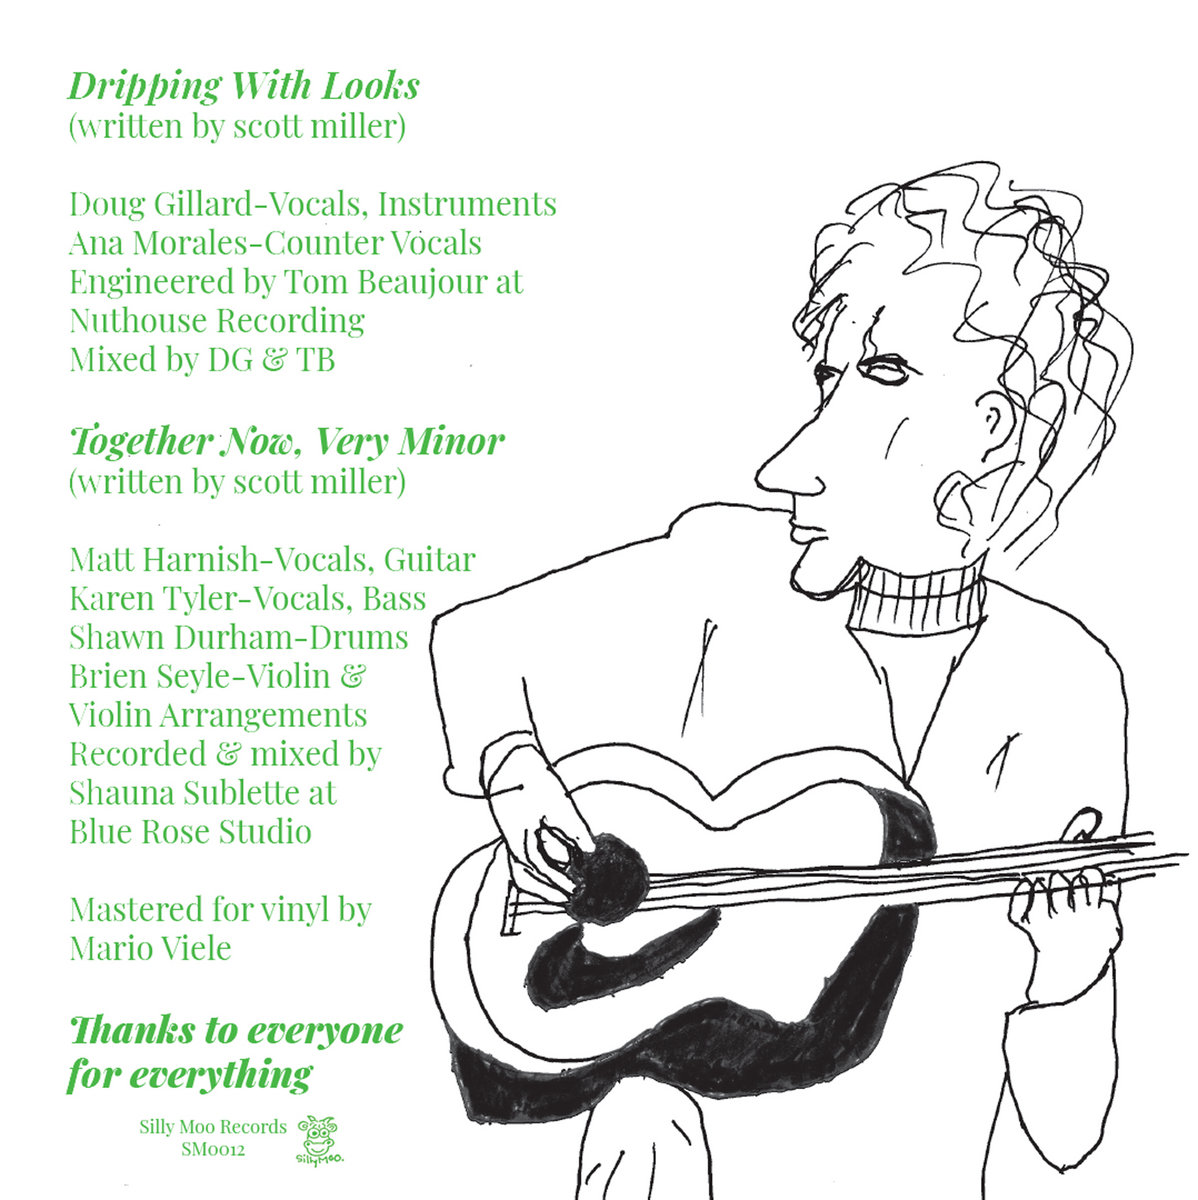 Dripping With Looks
(written by scott miller)
Doug Gillard-Vocals, Instruments
Ana Morales-Counter Vocals
Engineered by Tom Beaujour at
Nuthouse Recording
Mixed by DG & TB
Together Now, Very Minor
(written by scott miller)
Matt Harnish-Vocals, Guitar
Karen Tyler-Vocals, Bass
Shawn Durham-Drums
Brien Seyle-Violin &
Violin Arrangements
Recorded & mixed by
Shauna Sublette at
Blue Rose Studio
Mastered for vinyl by
Mario Viele
Thanks to everyone
for everything
Silly Moo Records
SM0012
SillyMoo.